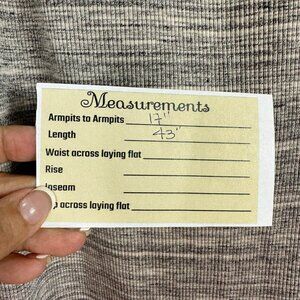 Measurements
Armpits to Armpits 17"
Length 43"
Waist across laying flat
Rise
Inseam
across laying flat